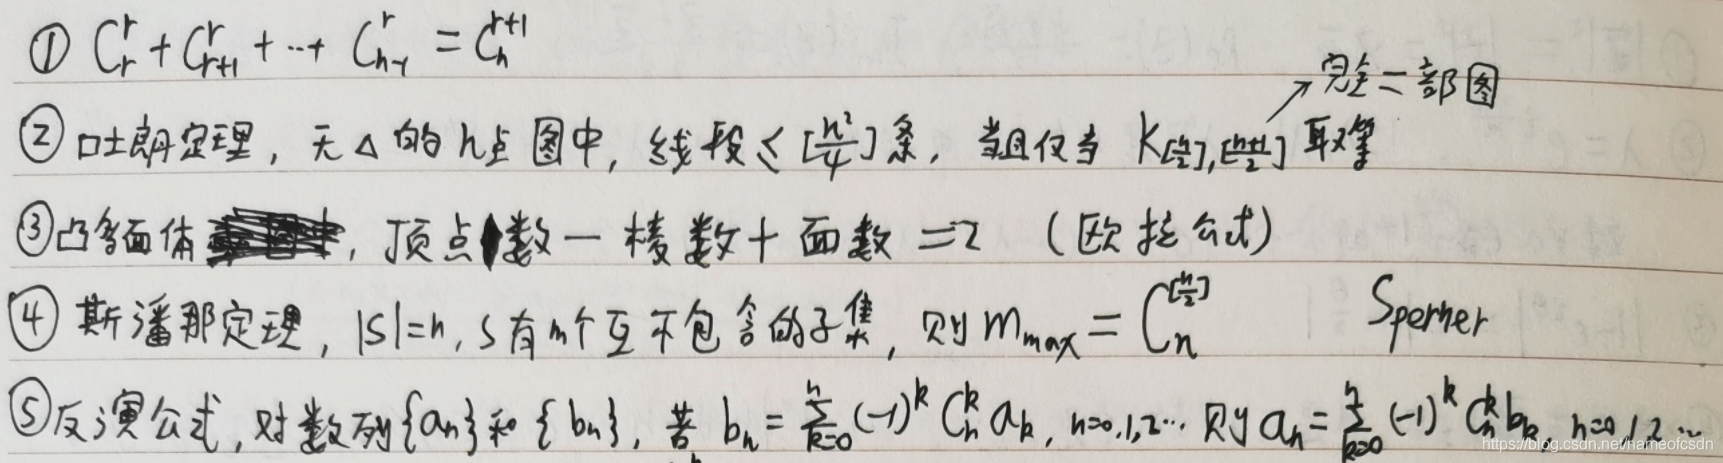 ① C_r^r + C_{r+1}^r + … + C_{n-1}^r = C_n^{r+1}
完全二部图
② 吐朗定理，无△的n点图中，线段≤[n²/4]条，当且仅当 K_{[n/2],[(n+1)/2]} 取等
③ 凸多面体，顶点数－棱数＋面数＝2 （欧拉公式）
④ 斯潘那定理，|S|=n，S有m个互不包含的子集，则 m_max = C_n^{[n/2]} Sperner
⑤ 反演公式，对数列{a_n}和{b_n}，若 b_n = ∑_{k=0}^n (-1)^k C_n^k a_k，n=0,1,2… 则 a_n = ∑_{k=0}^n (-1)^k C_n^k b_k，n=0,1,2…
https://blog.csdn.net/nameofcsdn